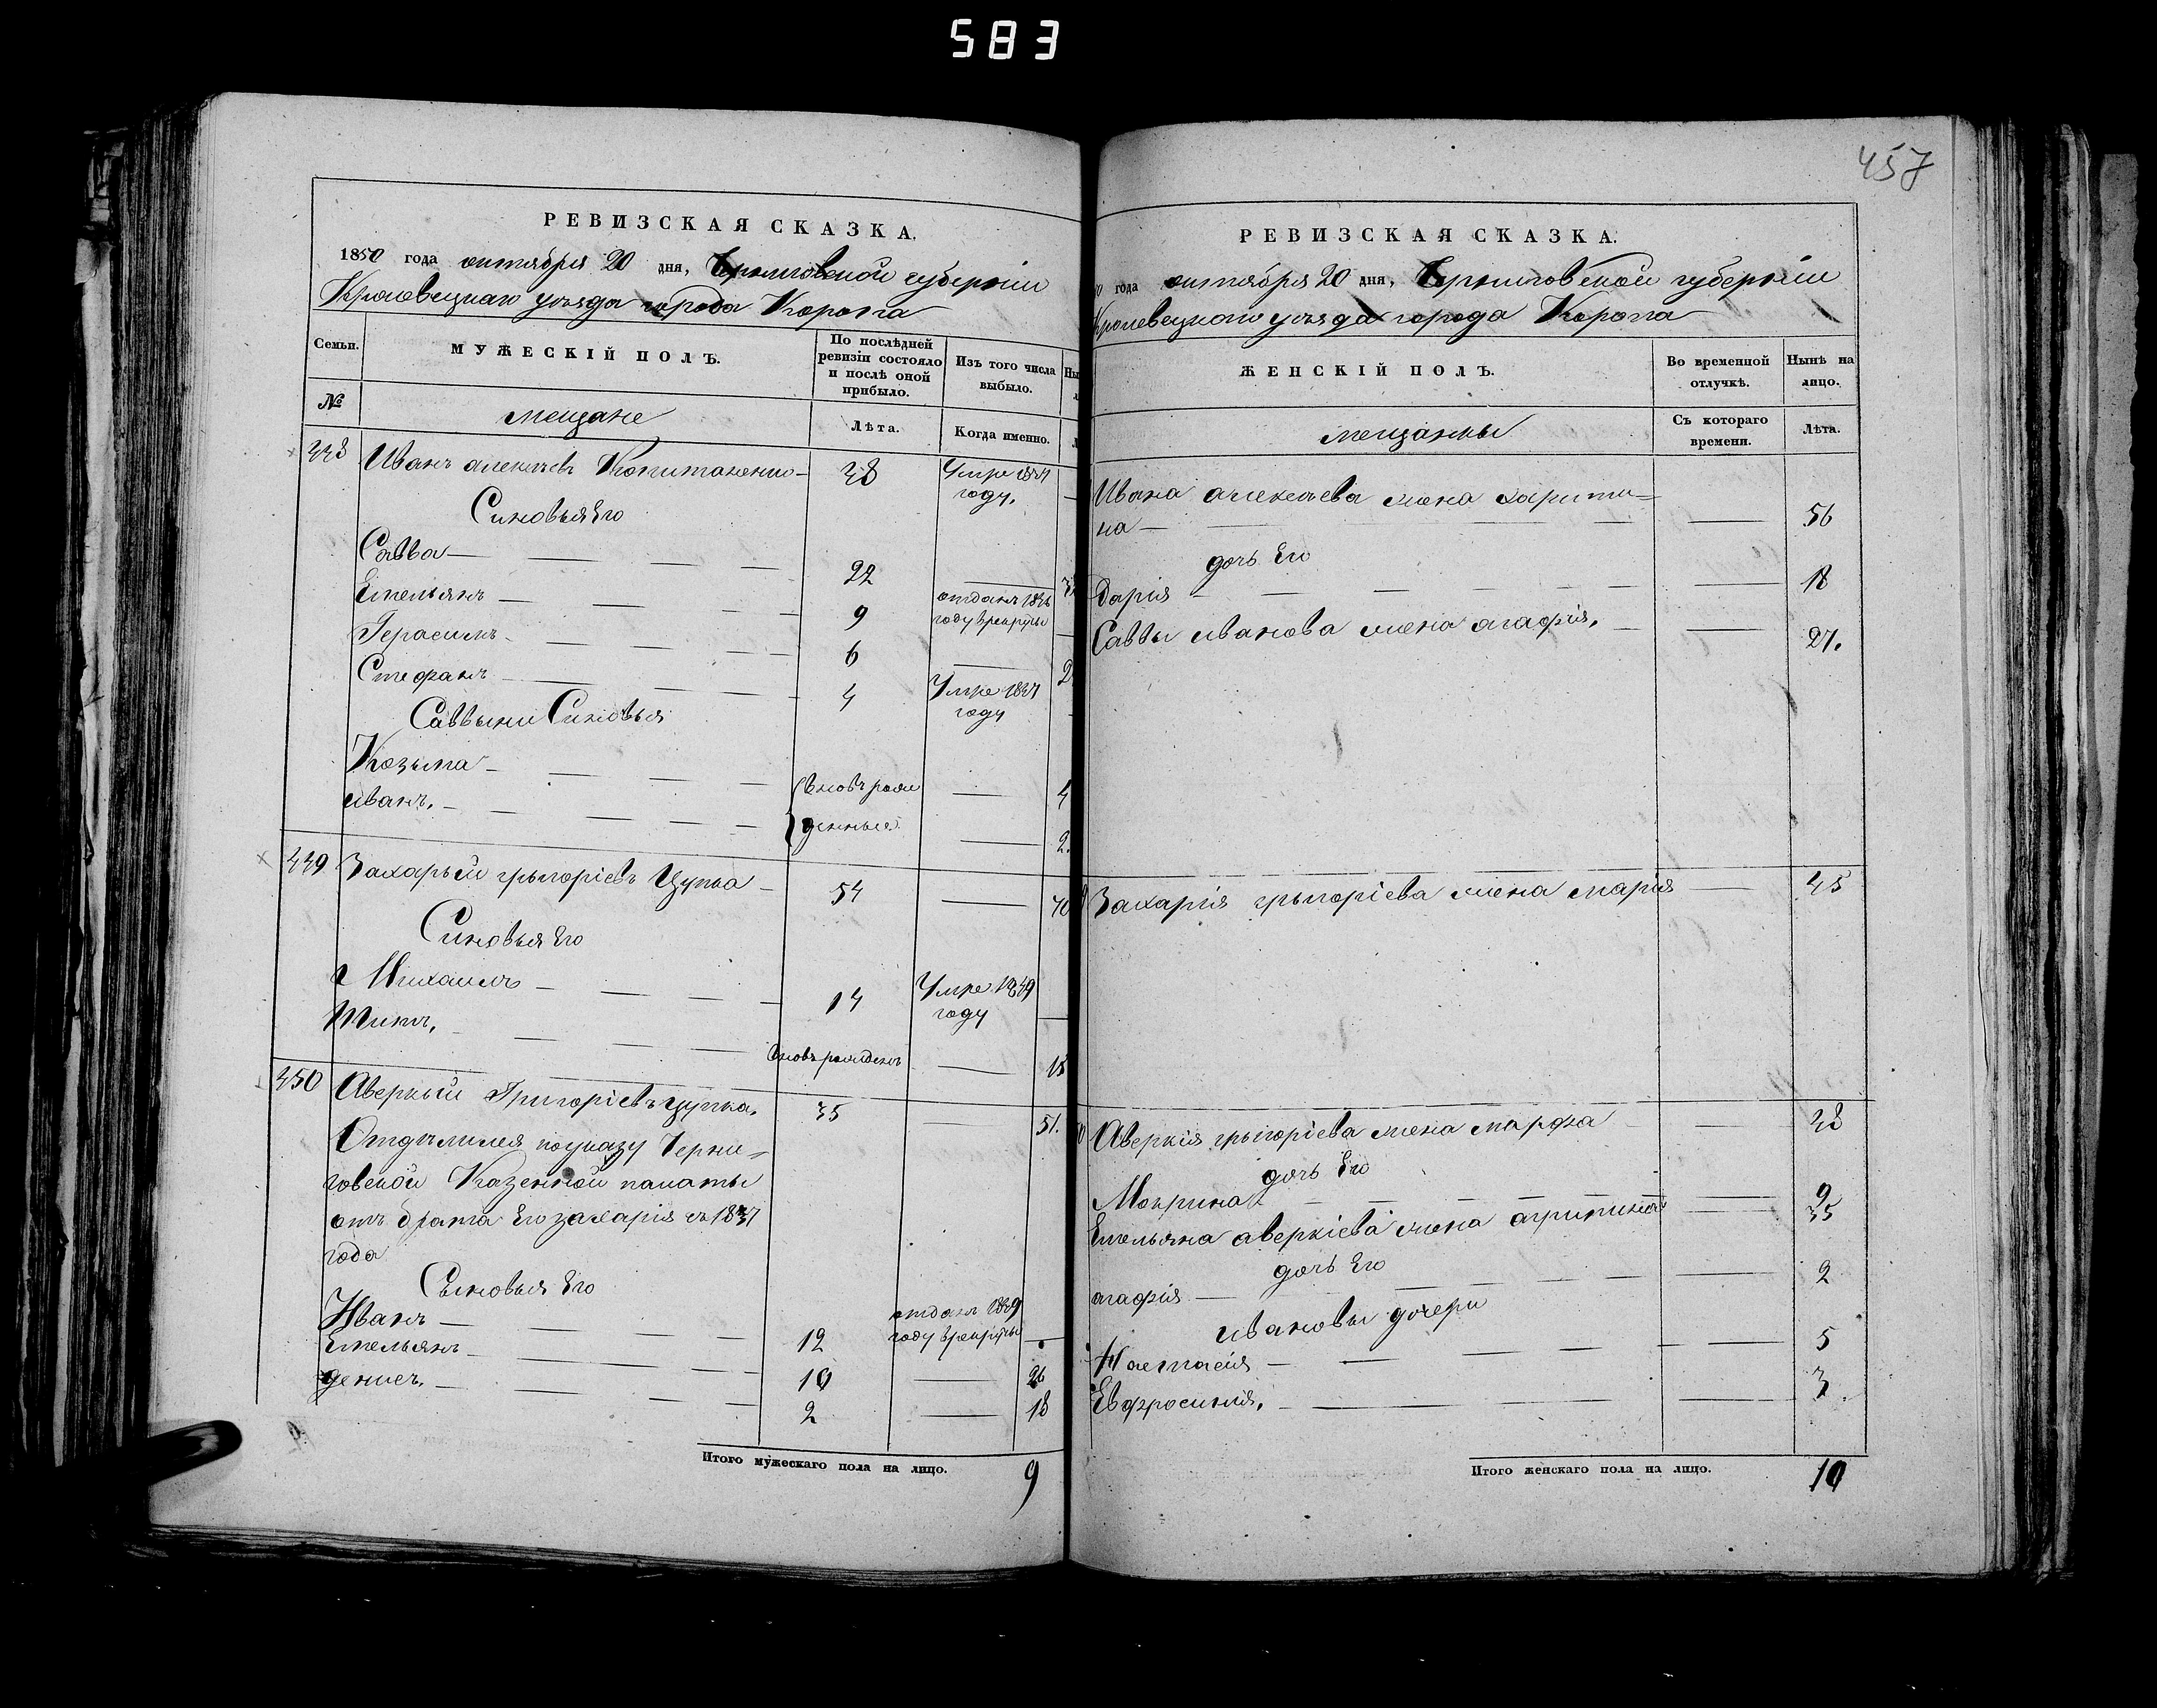 583
457
РЕВИЗСКАЯ СКАЗКА.
1850 года октября 20 дня, Черниговской губерніи
Кролевецкаго уезда города Коропа
Семьи.
МУЖЕСКІЙ ПОЛЪ.
По послѣдней
ревизіи состояло
и послѣ оной
прибыло.
Изъ того числа
выбыло.
№
мещане
Лѣта.
Когда именно.
448 Иванъ алексѣевъ 48 Умре
году.
Синовья Его
Савва 22
Емельянъ 9 отданъ
году врекруты
Герасимъ 6
Стефанъ 4 Умре
году
Саввыни Синовья
Козьма вновь рож 4
иванъ. денные 2.
449 Захарый грыгоріевъ Цупка 54
Синовья Его
Михаилъ 14 Умре 1849
году
Титъ. вновь рожденъ
450 Аверкый Григоріевъ цупка. 35 51.
Отдѣлился поуказу Черни=
говской Казенной палаты
отъ брата Его захарія
года
Сыновья Его
Иванъ 12 отданъ
году врекруты
Емельянъ 10 26
денисъ. 2 18
Итого мужескаго пола на лицо. 9
РЕВИЗСКАЯ СКАЗКА.
года октября 20 дня, Черниговской губерніи
Кролевецкаго уезда города Коропа
ЖЕНСКІЙ ПОЛЪ.
Во временной
отлучкѣ.
Нынѣ на
лицо.
мещанкы
Съ котораго
времени.
Лѣта.
Ивана алексѣева жена харити=
на 56
дочь Его
дарія 18
Саввы иванова жена агафія. 27.
Захарія грыгоріева жена марія 45
Аверкія грыгоріева жена марфа 48
дочь Его
Мокрина 9
Емельяна аверкіева жена агрипина 35
дочь Его
агафія 2
ивановы дочери
Настасія 5
Евфросинія. 3
Итого женскаго пола на лицо. 10